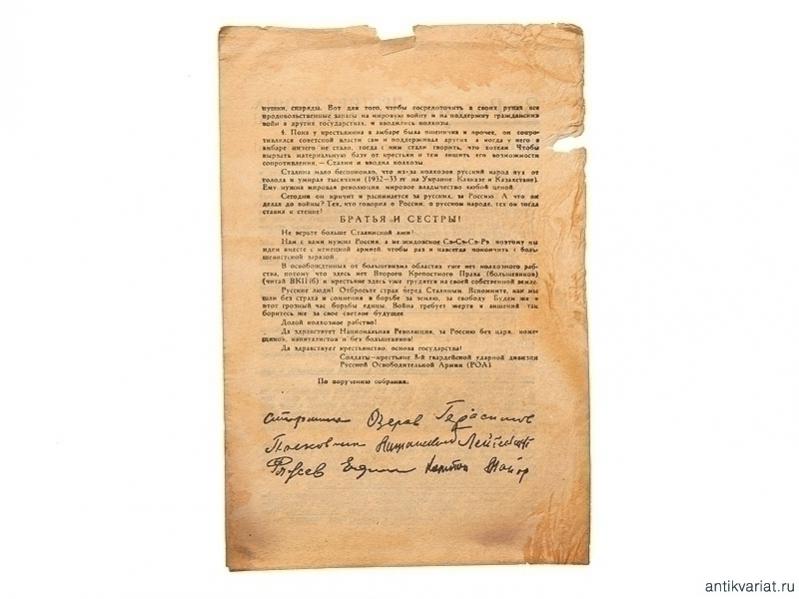 пушки, снаряды. Вот для того, чтобы сосредоточить в своих руках все
продовольственные запасы на мировую войну и на поддержку гражданских
войн в других государствах, и вводились колхозы.
4. Пока у крестьянина в амбаре была пшеничка и прочее, он сопро-
тивлялся советской власти сам и поддерживал других а когда у него в
амбаре ничего не стало, тогда с ним стали говорить, что хотели. Чтобы
вырвать материальную базу от крестьян и тем лишить его возможности
сопротивления, — Сталин и вводил колхозы.
Сталина мало беспокоило, что из-за колхозов русский народ пух от
голода и умирал тысячами (1932—33 гг на Украине Кавказе и Казахстане).
Ему нужна мировая революция, мировое владычество любой ценой.
Сегодня он кричит и распинается за русских, за Россию. А что он
делал до войны? Тех, что говорил о России, о русском народе, тех он тогда
ставил к стенке!
БРАТЬЯ И СЕСТРЫ!
Не верьте больше Сталинской лжи!
Нам с вами нужна Россия, а не жидовское Сэ-Сэ-Сэ-Рэ поэтому мы
идем вместе с немецкой армией, чтобы раз и навсегда покончить с боль-
шевистской заразой.
В освобожденных от большевизма областях уже нет колхозного раб-
ства, потому что здесь нет Второго Крепостного Права (большевиков)
(читай ВКП(б) и крестьяне здесь уже трудятся на своей собственной земле.
Русские люди! Отбросьте страх перед Сталиным. Вспомните, как мы
шли без страха и сомнения в борьбе за землю, за свободу. Будем же в
этот грозный час борьбы едины. Война требует жертв и лишений так
боритесь же за свое светлое будущее.
Долой колхозное рабство!
Да здравствует Национальная Революция, за Россию без царя, поме-
щиков, капиталистов и без большевиков!
Да здравствует крестьянство, основа государства!
Солдаты—крестьяне 8-й гвардейской ударной дивизии
Русской Освободительной Армии (РОА).
По поручению собрания:
Озеров Герасимов
Полковник Лейтенант
Капитан Майор
antikvariat.ru